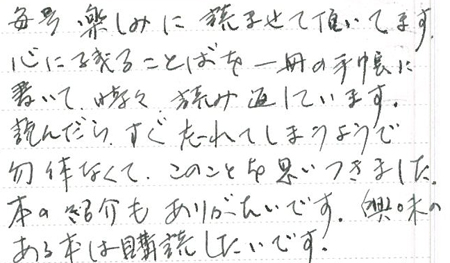 毎号 楽しみに 読ませて頂いてます。
心に残ることばを 一冊の手帳に
書いて、時々、読み返しています。
読んだら、すぐ忘れてしまうようで
勿体なくて、このことを思いつきました。
本の紹介も ありがたいです。興味の
ある本は購読したいです。